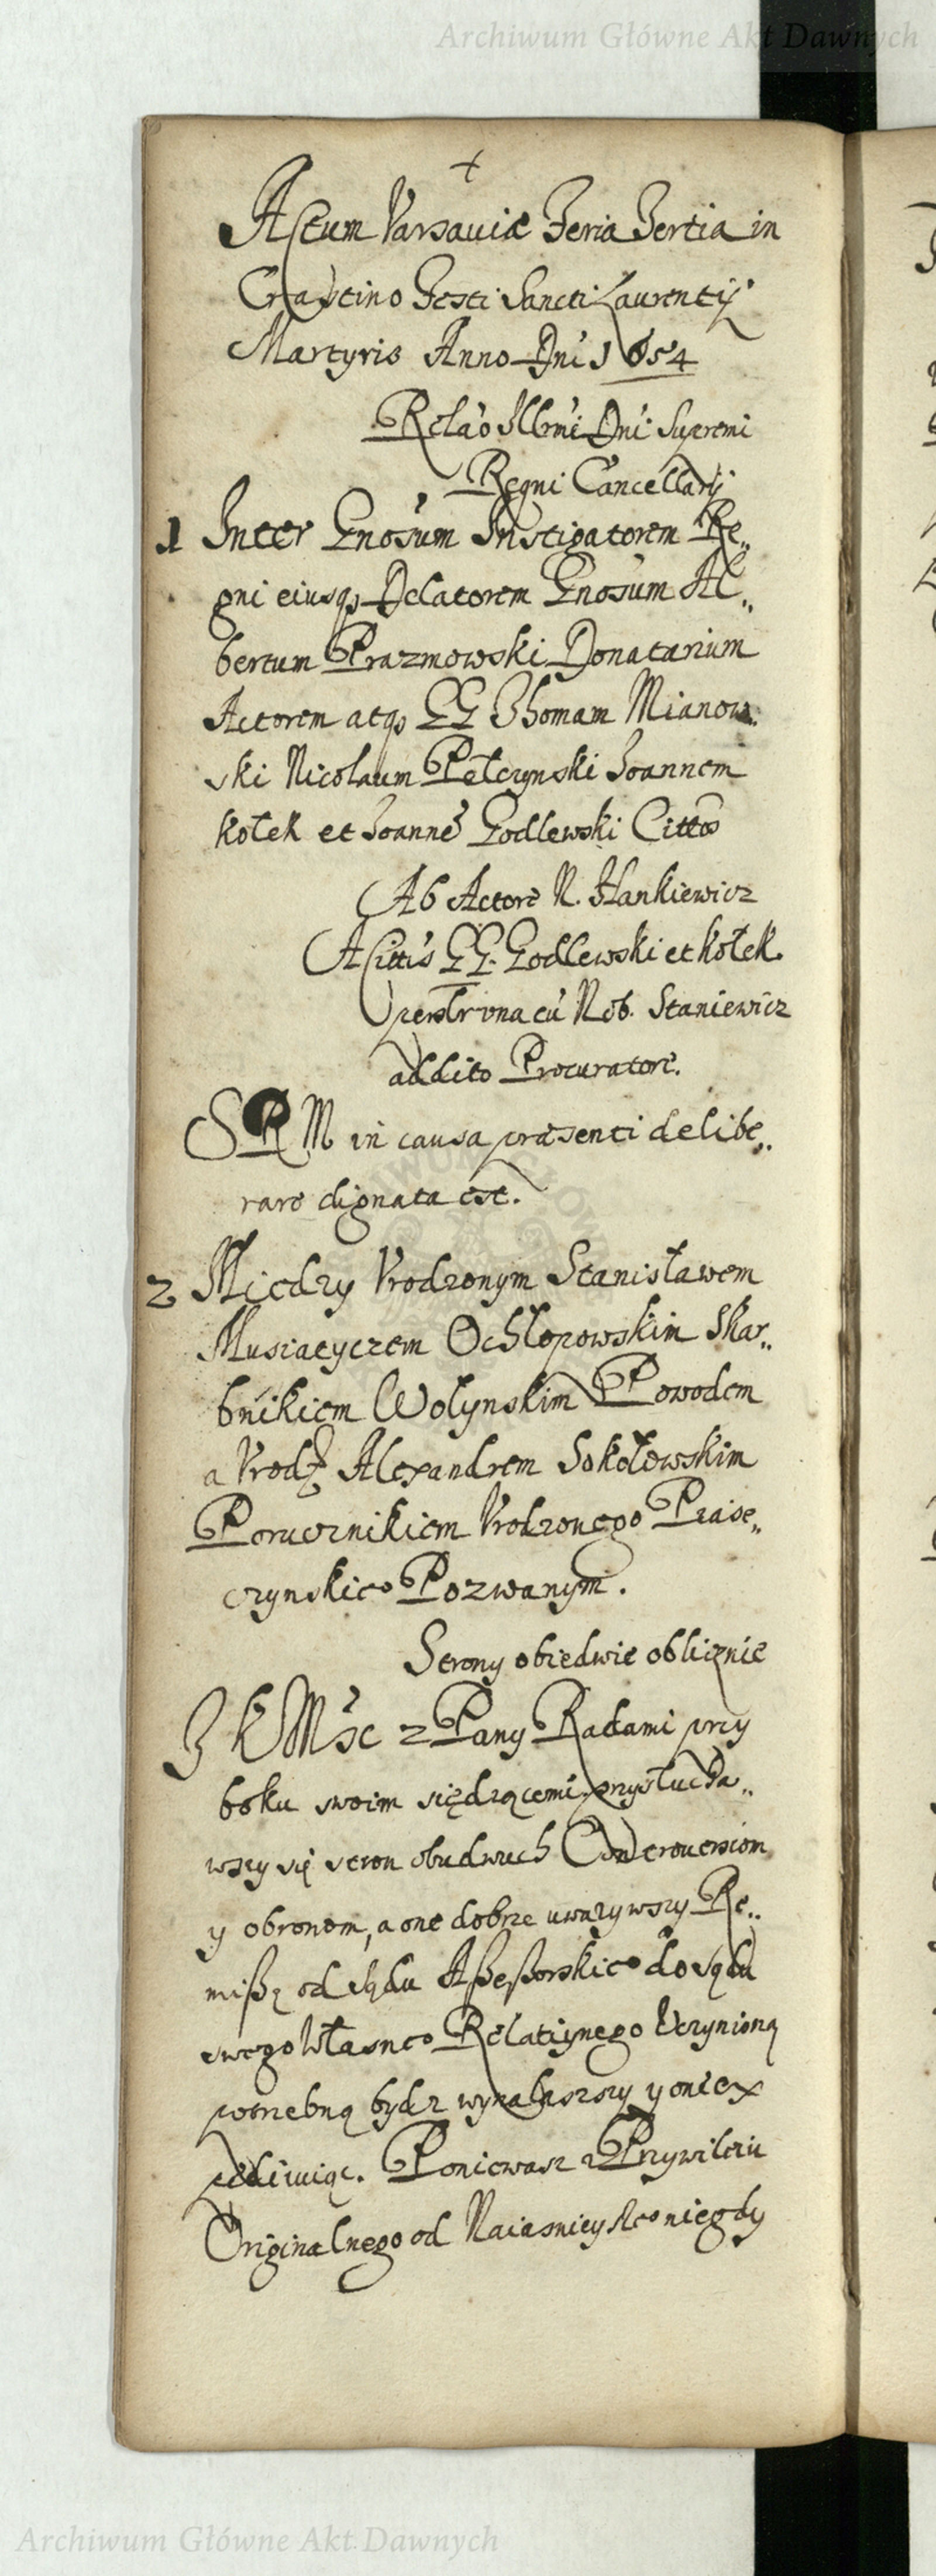 Archiwum Główne Akt Dawnych
+
Actum Varsaviæ Feria Tertia in
Crastino Festi Sancti Laurentij
Martyris Anno Dni 1654
Relao Illrmi Dni Supremi
Regni Cancellarij
1 Inter Gnosum Instigatorem Re„
gni eiusq₃ Delatorem Gnosum Al„
bertum Prazmowski Donatarium
Actorem atq₃ GG Thomam Mianow„
ski Nicolaum Pełczynski Joannem
Kołek et Joanné Godlewski Cittos
Ab Actore N. Hankiewicz
A Cittis GG. Godlewski et Kołek
una cú Nob. Staniewicz
addito Procuratore.
S R M in causa præsenti delibe„
rare dignata est.
2 Miedzy Vrodzonym Stanisławem
Ochłopowskim Skar„
bnikiem Wołynskim Powodem
a Vrodz Alexandrem Sokołowskim
Porucznikiem Vrodzonego Piase„
czynskieo Pozwanym.
Strony obiedwie oblicznie
J K Mśc z Pany Radami przy
boku swoim siędzącemi przysłucha„
wszy się stron obudwuch Controversiom
y obronom, a one dobrze uwazywszy Re„
missę od sądu Assessorskieo do sądu
swego Własneo Relatiynego Vczynioną
potrzebną bydz wynalaszszy y oniex
cediuiąc. Poniewasz z Przywileiu
Originalnego od Naiasnieyszeo niegdy
Archiwum Główne Akt Dawnych